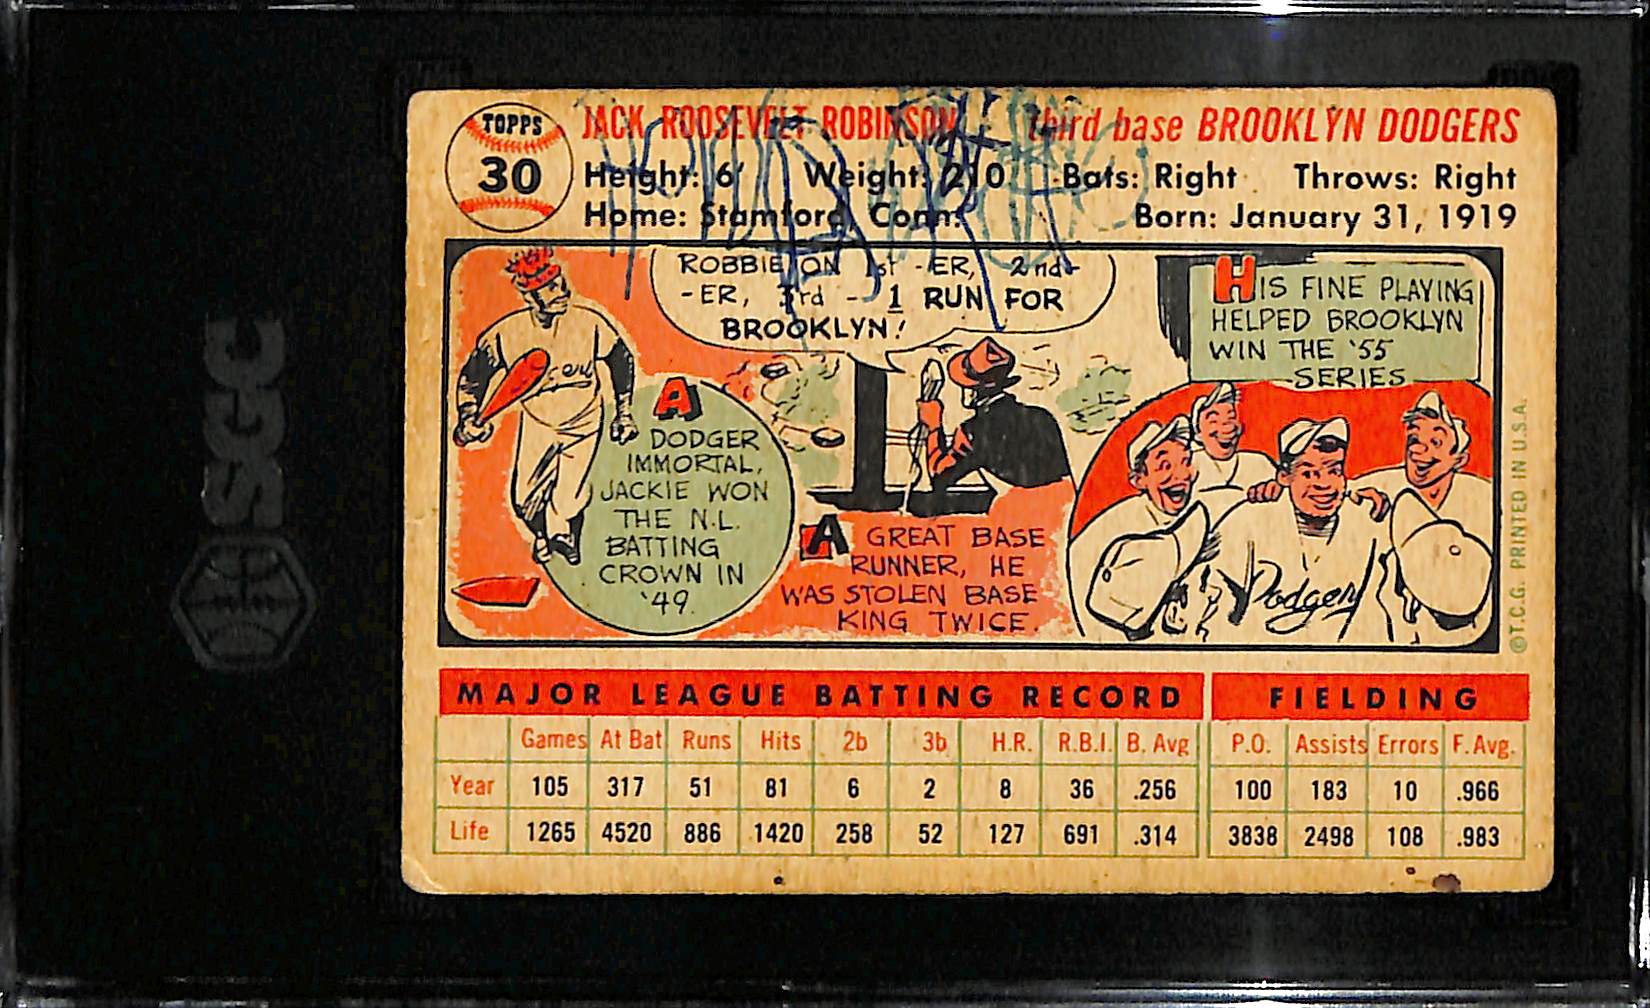 SGC
TOPPS
30
JACK ROOSEVELT ROBINSON third base BROOKLYN DODGERS
Height: 6' Weight: 210 Bats: Right Throws: Right
Home: Stamford, Conn. Born: January 31, 1919
ROBBIE ON 1st -ER, 2nd-
-ER, 3rd - 1 RUN FOR
BROOKLYN!
A
DODGER
IMMORTAL,
JACKIE WON
THE N.L.
BATTING
CROWN IN
'49.
A GREAT BASE
RUNNER, HE
WAS STOLEN BASE
KING TWICE.
HIS FINE PLAYING
HELPED BROOKLYN
WIN THE '55
SERIES
Dodgers
©T.C.G. PRINTED IN U.S.A.
MAJOR LEAGUE BATTING RECORD FIELDING
Games At Bat Runs Hits 2b 3b H.R. R.B.I. B. Avg P.O. Assists Errors F. Avg.
Year 105 317 51 81 6 2 8 36 .256 100 183 10 .966
Life 1265 4520 886 1420 258 52 127 691 .314 3838 2498 108 .983